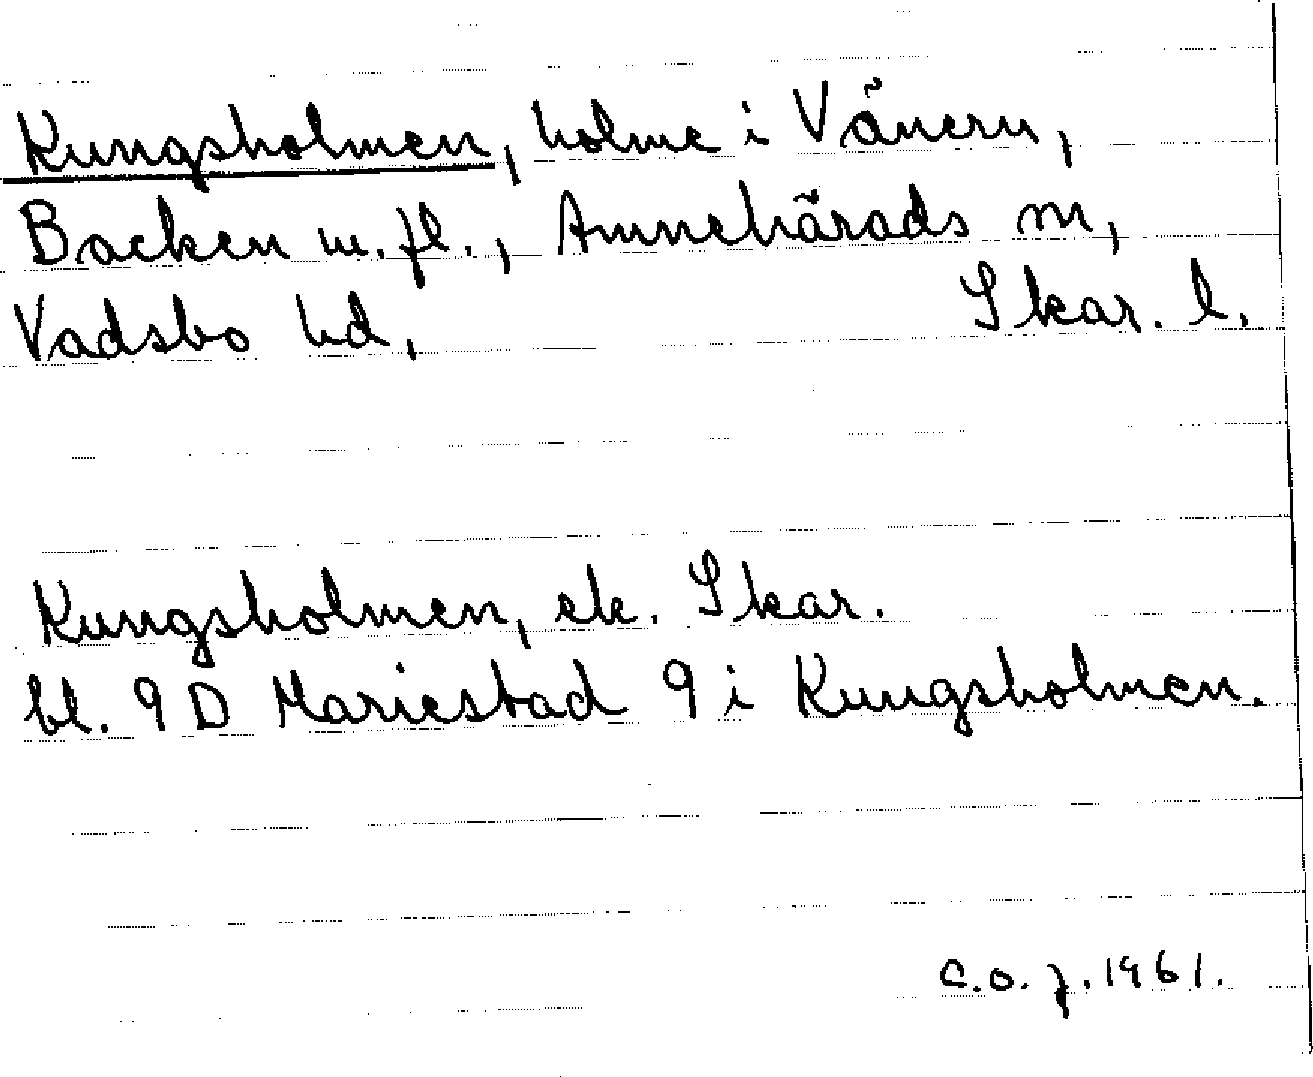 Kungsholmen, holme i Vänern,
Backen m. fl., Amnehärads sn,
Vadsbo hd, Skar. l.
Kungsholmen, ek. Skar.
bl. 9 D Mariestad 9 i Kungsholmen.
C.O.J. 1961.